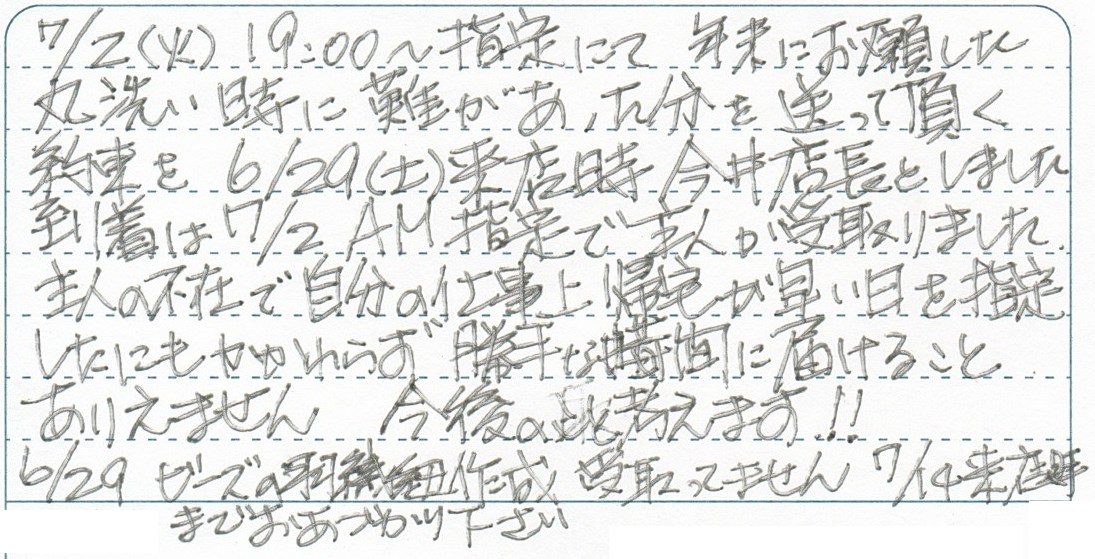 7/2(火) 19:00～指定にて 年末にお願した
丸洗い時に難があった分を送って頂く
約束を 6/29(土)来店時 今井店長としました
到着は7/2 AM指定で主人が受取りました.
主人の不在で自分の仕事上帰宅が早い日を指定
したにもかかわらず 勝手な時間に届けること
ありえません 今後の 考えます!!
6/29 ビーズの羽織紐作成 受取ってません 7/14来店時
までおあづかり下さい